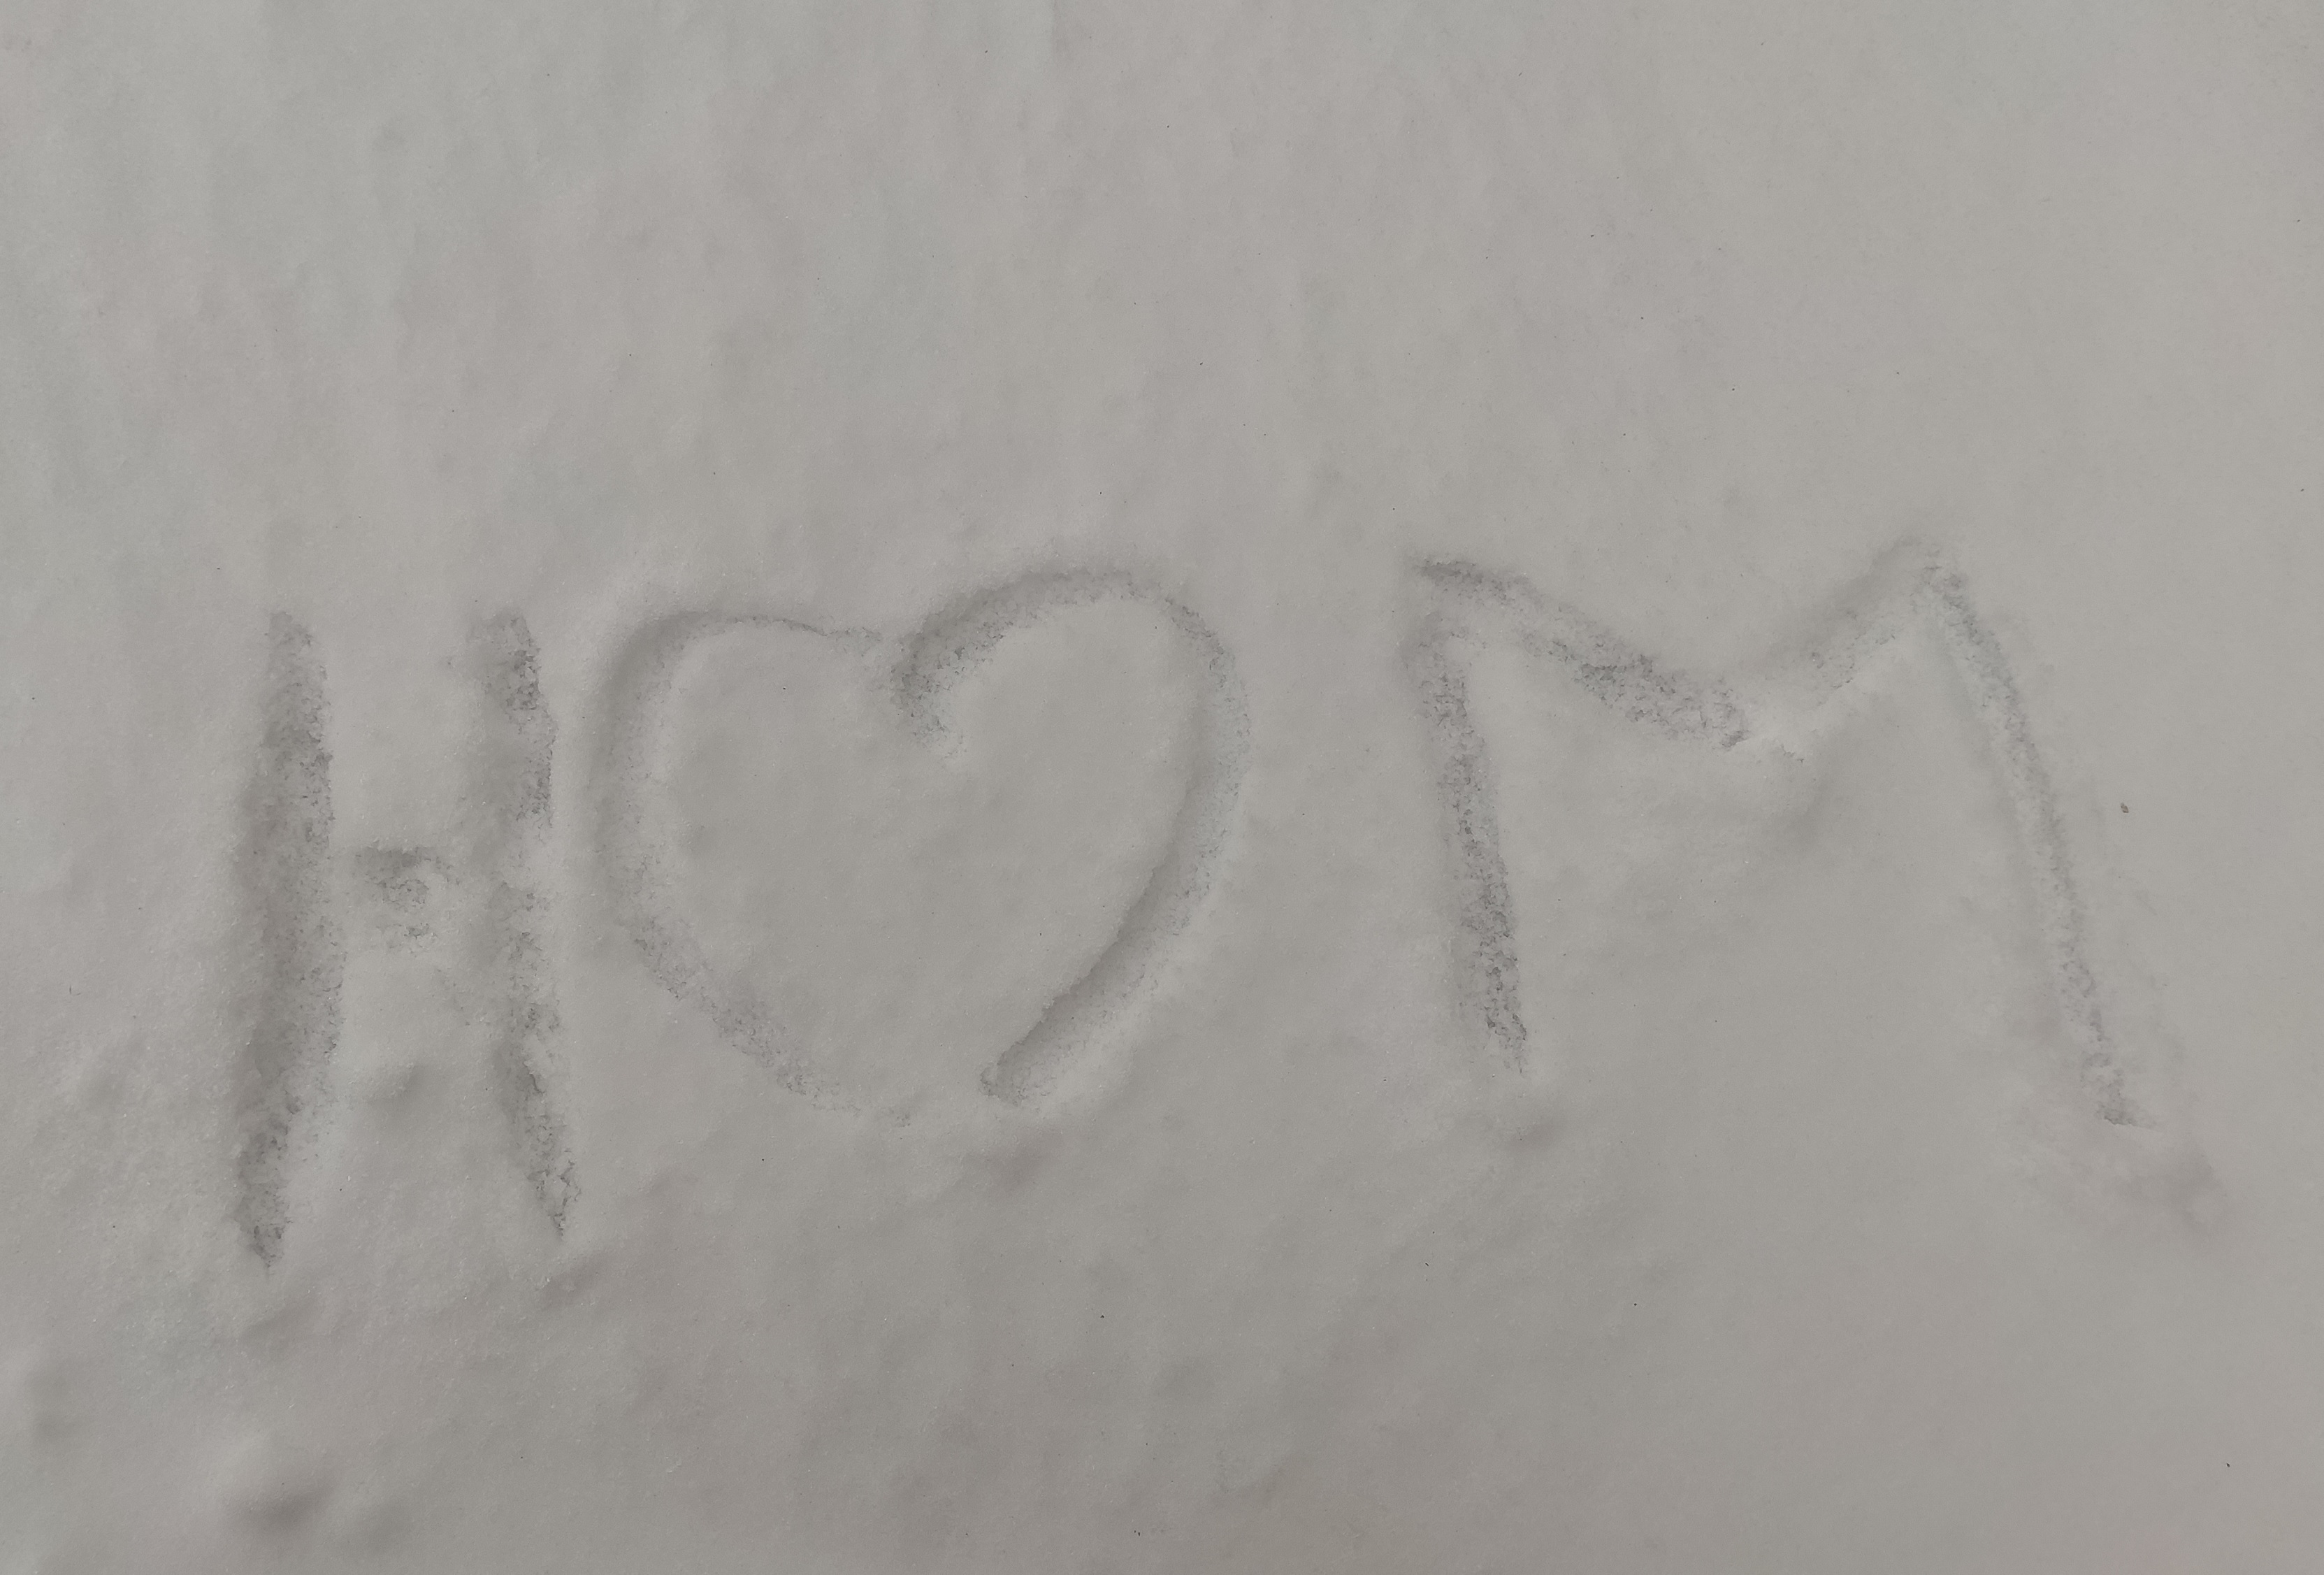 H♡M